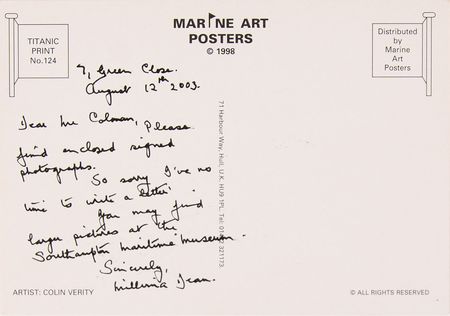 TITANIC
PRINT
No.124
MARINE ART
POSTERS
© 1998
Distributed
by
Marine
Art
Posters
7, Green Close.
August 12th 2003.
Dear Mr Colman, Please
find enclosed signed
photographs.
So sorry I've no
time to write a letter
You may find
larger pictures at the
Southampton maritime museum.
Sincerely,
Millvina Dean.
71 Harbour Way, Hull, U.K. HU9 1PL. Tel: 321173
ARTIST: COLIN VERITY
© ALL RIGHTS RESERVED